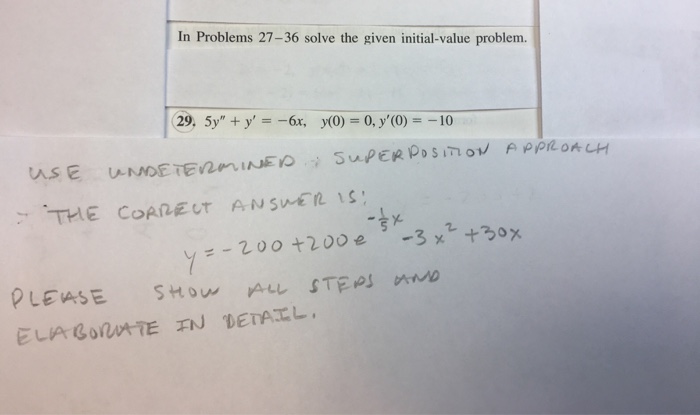 In Problems 27–36 solve the given initial-value problem.
29. 5y" + y' = −6x, y(0) = 0, y'(0) = −10
USE UNDETERMINED SUPERPOSITION APPROACH
THE CORRECT ANSWER IS:
y = -200 + 200e^{-1/5 x} - 3x² + 30x
PLEASE SHOW ALL STEPS AND
ELABORATE IN DETAIL.